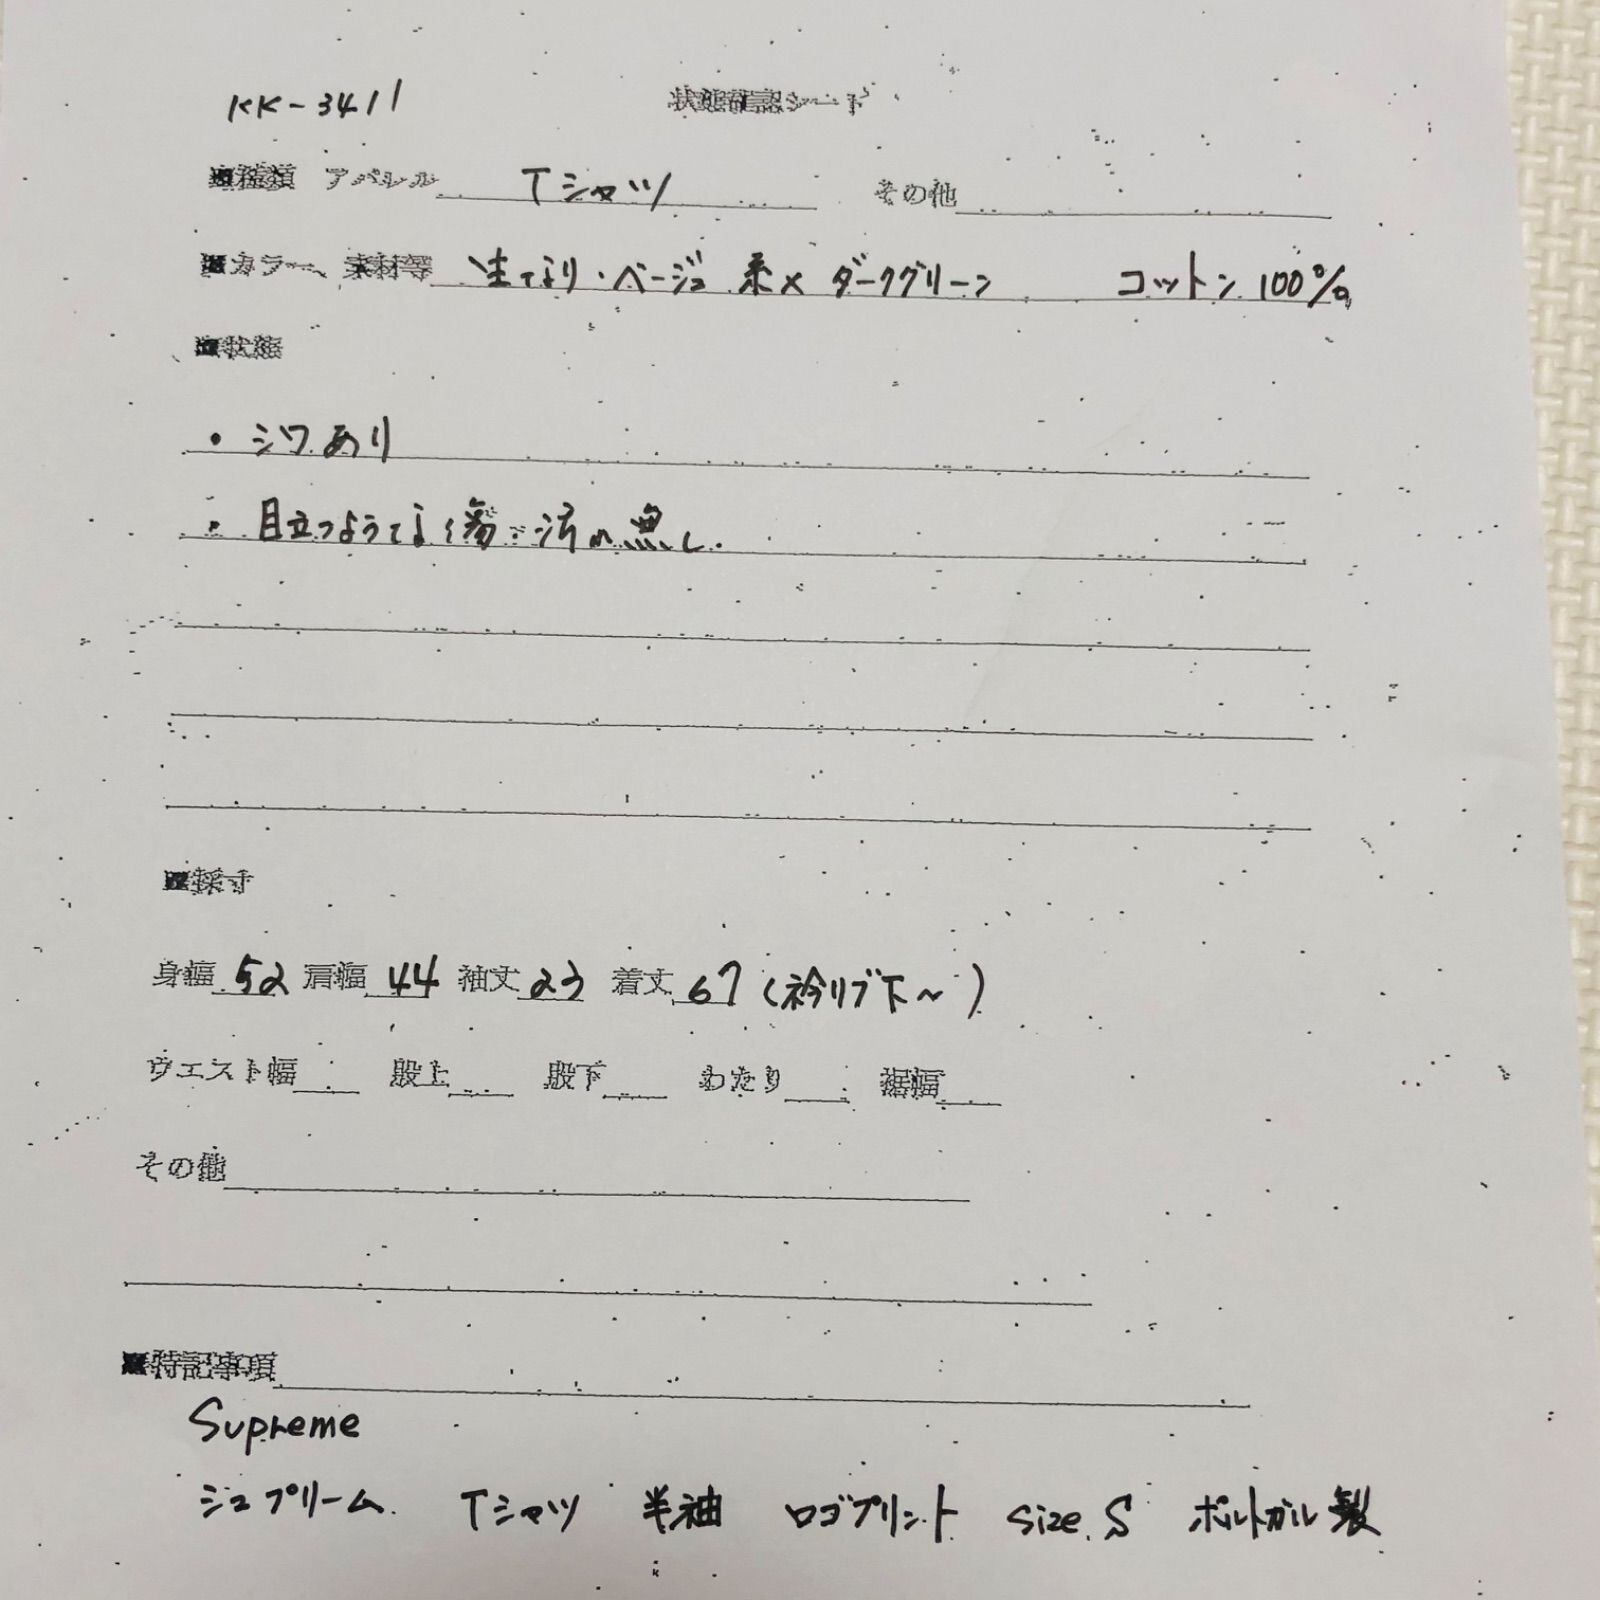 KK-3411 状態確認シート
■種類 アパレル Tシャツ その他
■カラー、素材等 生なり・ベージュ系×ダークグリーン コットン100%
■状態
・シワあり
・目立つような傷・汚れ無し.
■採寸
身幅 52 肩幅 44 袖丈 23 着丈 67 (衿リブ下〜)
ウエスト幅 股上 股下 わたり 裾幅
その他
■特記事項
Supreme
シュプリーム Tシャツ 半袖 ロゴプリント size S ポルトガル製